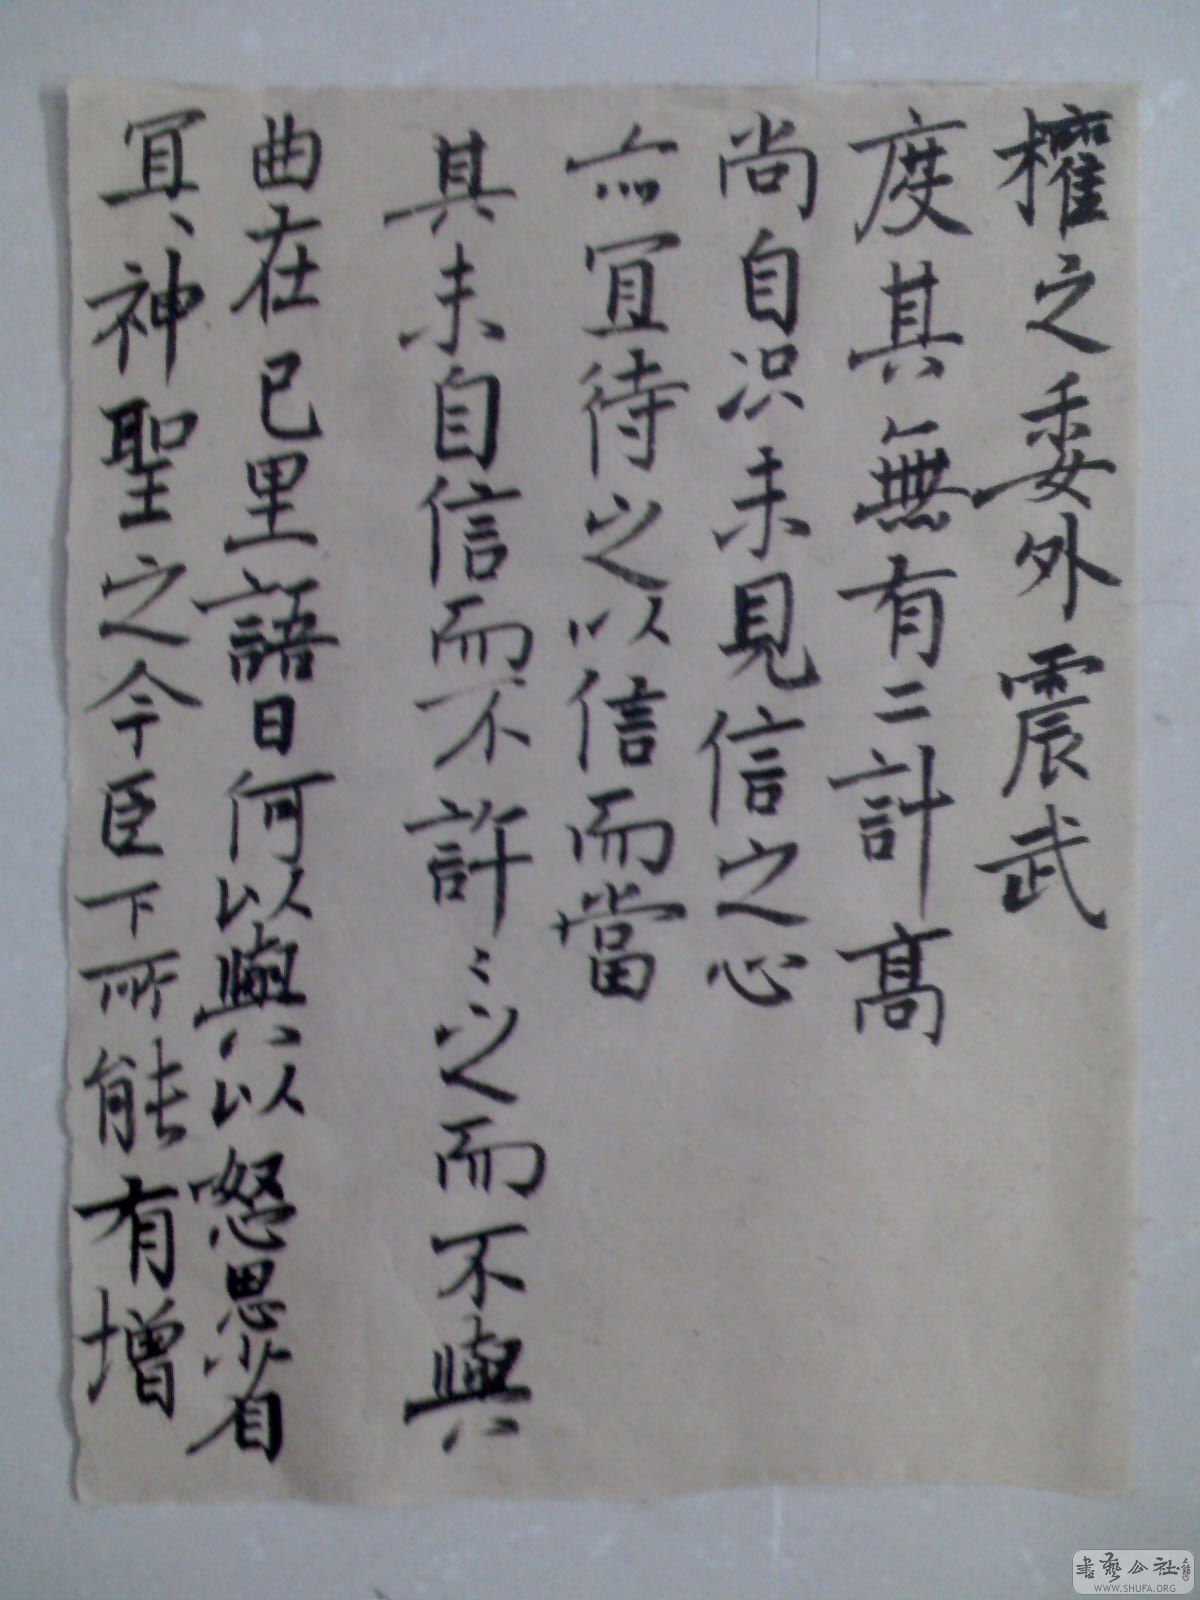 權之委外震武
度其無有二計高
尚自识未見信之心
亦宜待之以信而當
其未自信而不許〻之而不與
曲在己里語曰何以與以怒思省
冝、神聖之今臣下所能有增
書藝公社
WWW.SHUFA.ORG